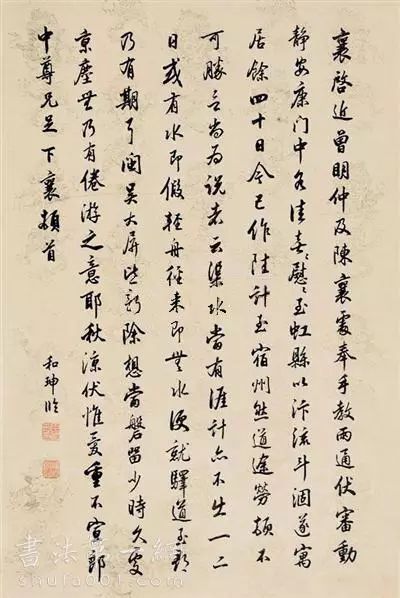 襄啓近曾明仲及陳襄處奉手教兩通伏審動
静安康门中各佳喜〻慰〻至虹縣以汴流斗涸遂寓
居餘四十日今已作陸計至宿州然道途勞頓不
可勝言尚為說者云渠水當有涯計亦不出一二
日或有水即假輕舟徑来即無水便就驛道至都
乃有期耳閩吳大屏皆新除想當磐留少時久處
京塵無乃有倦游之意耶秋凉伏惟愛重不宣郎
中尊兄足下襄頓首
和珅临
書法第一網
shufa001.com